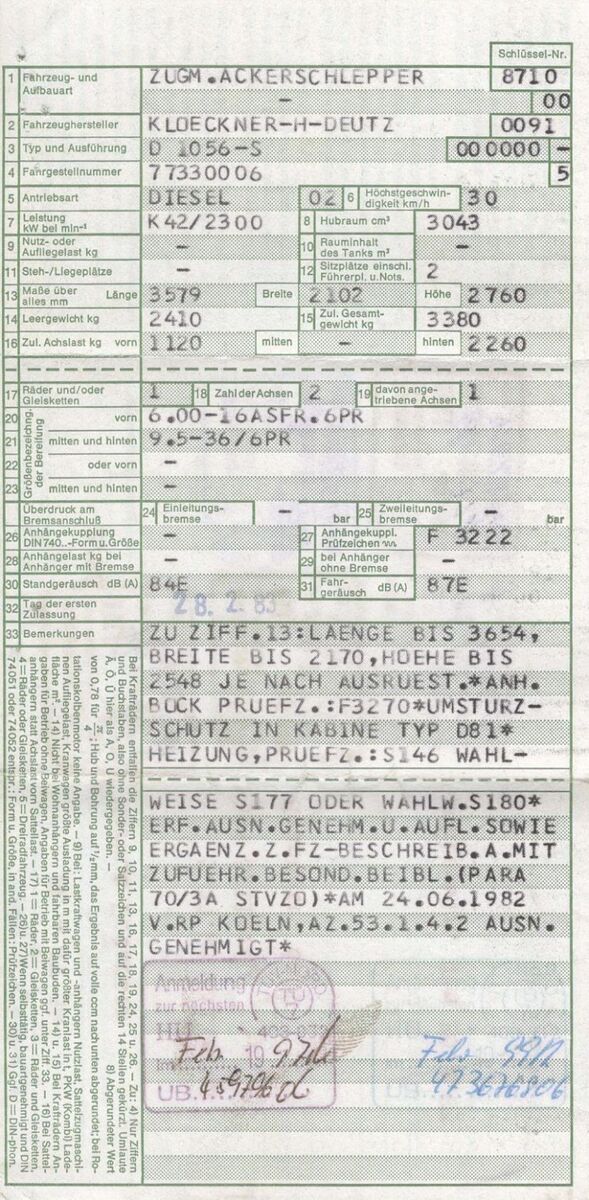 Schlüssel-Nr.
1 Fahrzeug- und Aufbauart ZUGM.ACKERSCHLEPPER 8710
– 00
2 Fahrzeughersteller KLOECKNER-H-DEUTZ 0091
3 Typ und Ausführung D 1056-S 000000 –
4 Fahrgestellnummer 77330006 5
5 Antriebsart DIESEL 02 6 Höchstgeschwindigkeit km/h 30
7 Leistung kW bei min⁻¹ K42/2300 8 Hubraum cm³ 3043
9 Nutz- oder Aufliegelast kg – 10 Rauminhalt des Tanks m³ –
11 Steh-/Liegeplätze – 12 Sitzplätze einschl. Führerpl. u. Nots. 2
13 Maße über alles mm Länge 3579 Breite 2102 Höhe 2760
14 Leergewicht kg 2410 15 Zul. Gesamtgewicht kg 3380
16 Zul. Achslast kg vorn 1120 mitten – hinten 2260
17 Räder und/oder Gleisketten 1 18 Zahl der Achsen 2 19 davon angetriebene Achsen 1
Größenbezeichnung der Bereifung
20 vorn 6.00-16ASFR.6PR
21 mitten und hinten 9.5-36/6PR
22 oder vorn –
23 mitten und hinten –
Überdruck am Bremsanschluß 24 Einleitungsbremse – bar 25 Zweileitungsbremse – bar
26 Anhängekupplung DIN 740..-Form u. Größe – 27 Anhängekuppl. Prüfzeichen F 3222
28 Anhängelast kg bei Anhänger mit Bremse – 29 bei Anhänger ohne Bremse –
30 Standgeräusch dB (A) 84E 31 Fahrgeräusch dB (A) 87E
32 Tag der ersten Zulassung 28. 2. 83
33 Bemerkungen ZU ZIFF.13:LAENGE BIS 3654,
BREITE BIS 2170,HOEHE BIS
2548 JE NACH AUSRUEST.*ANH.
BOCK PRUEFZ.:F3270*UMSTURZ-
SCHUTZ IN KABINE TYP D81*
HEIZUNG,PRUEFZ.:S146 WAHL-
WEISE S177 ODER WAHLW.S180*
ERF.AUSN.GENEHM.U.AUFL.SOWIE
ERGAENZ.Z.FZ-BESCHREIB.A.MIT
ZUFUEHR.BESOND.BEIBL.(PARA
70/3A STVZO)*AM 24.06.1982
V.RP KOELN,AZ.53.1.4.2 AUSN.
GENEHMIGT*
Bei Krafträdern entfallen die Ziffern 9, 10, 11, 13, 16, 17, 18, 19, 24, 25 u. 26. – Zu: 4) Nur Ziffern
und Buchstaben, also ohne Sonder- oder Satzzeichen und auf die rechten 14 Stellen gekürzt. Umlaute
Ä, Ö, Ü hier als A, O, U wiedergegeben. – 8) Abgerundeter Wert
von 0,78 für π/4; Hub und Bohrung auf ½ mm, das Ergebnis auf volle ccm nach unten abgerundet; bei Ro-
tationskolbenmotor keine Angabe. – 9) Bei: Lastkraftwagen und -anhängern Nutzlast, Sattelzugmaschi-
nen Aufliegelast, Kranwagen größte Ausladung in m mit dafür größter Kranlast in t, PKW (Kombi) Lade-
fläche m². – 14) Nicht bei Wohnanhängern und fahrbaren Baubuden. – 14) u. 15) Bei Krafträdern An-
gaben für Betrieb ohne Beiwagen, Angaben für Betrieb mit Beiwagen ggf. unter Ziff. 33. – 16) Bei Sattel-
anhängern statt Achslast vorn Sattellast. – 17) 1 = Räder, 2 = Gleisketten, 3 = Räder und Gleisketten,
4 = Räder oder Gleisketten, 5 = Dreiradfahrzeug. – 26) u. 27) Wenn selbsttätig, bauartgenehmigt und DIN
74051 oder 74052 entspr.: Form u. Größe, in and. Fällen: Prüfzeichen. – 30) u. 31) Ggf. D = DIN-phon.
Anmeldung
zur nächsten
HU
TÜ
Feb. 19
UB
Feb